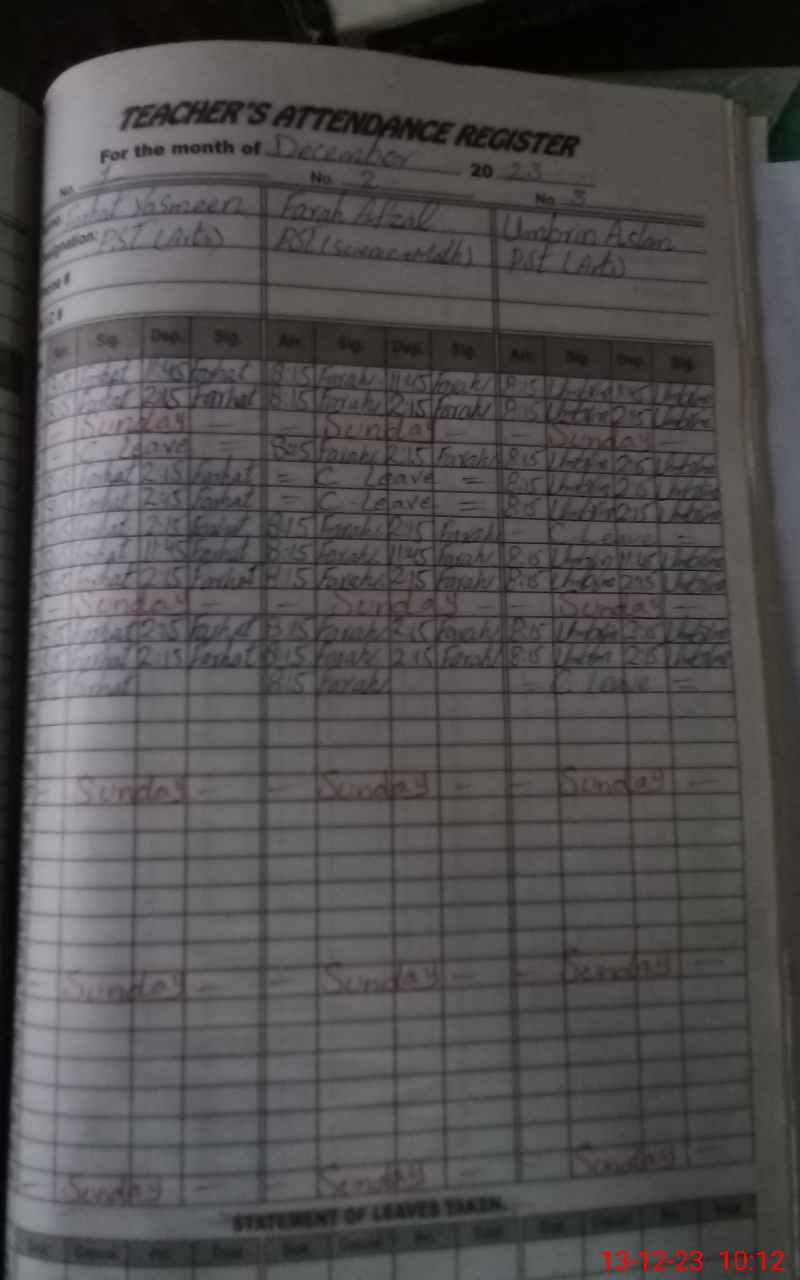 TEACHER'S ATTENDANCE REGISTER
For the month of December 20 23
No. 1 No. 2 No. 3
Farhat Yasmeen Farah Afzal Umbrin Aslam
PST (Arts) PST (Science Math) PST (Arts)
Arr. Sig. Dep. Sig. Arr. Sig. Dep. Sig. Arr. Sig. Dep. Sig.
Farhat 11:45 Farhat 8:15 Farah 11:45 Farah 8:15 Umbrin 11:45 Umbrin
Farhat 2:15 Farhat 8:15 Farah 2:15 Farah 8:15 Umbrin 2:15 Umbrin
- Sunday - - Sunday - - Sunday -
- C Leave = 8:15 Farah 2:15 Farah 8:15 Umbrin 2:15 Umbrin
Farhat 2:15 Farhat = C Leave = 8:15 Umbrin 2:15 Umbrin
Farhat 2:15 Farhat = C Leave = 8:15 Umbrin 2:15 Umbrin
Farhat 2:15 Farhat 8:15 Farah 2:15 Farah - C Leave =
Farhat 11:45 Farhat 8:15 Farah 11:45 Farah 8:15 Umbrin 11:45 Umbrin
Farhat 2:15 Farhat 8:15 Farah 2:15 Farah 8:15 Umbrin 2:15 Umbrin
- Sunday - - Sunday - - Sunday -
Farhat 2:15 Farhat 8:15 Farah 2:15 Farah 8:15 Umbrin 2:15 Umbrin
Farhat 2:15 Farhat 8:15 Farah 2:15 Farah 8:15 Umbrin 2:15 Umbrin
Farhat 8:15 Farah = C Leave =
- Sunday - - Sunday - - Sunday -
- Sunday - - Sunday - - Sunday -
- Sunday - - Sunday - - Sunday -
STATEMENT OF LEAVES TAKEN.
13-12-23 10:12